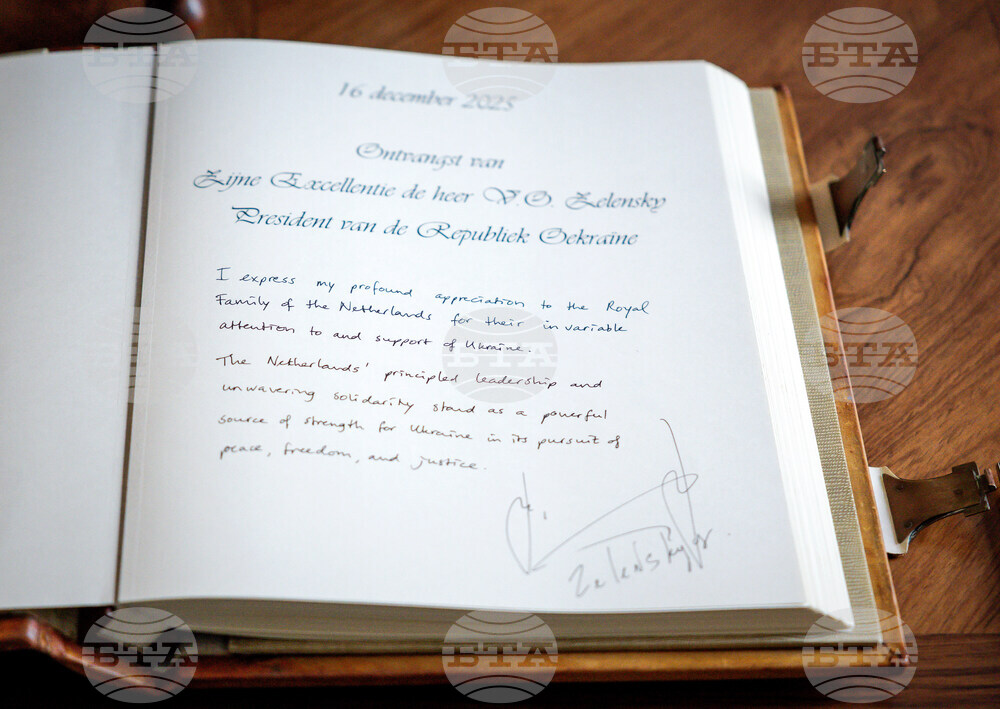 16 december 2025
Ontvangst van
Zijne Excellentie de heer V.O. Zelensky
President van de Republiek Oekraïne
I express my profound appreciation to the Royal
Family of the Netherlands for their invariable
attention to and support of Ukraine.
The Netherlands' principled leadership and
unwavering solidarity stand as a powerful
source of strength for Ukraine in its pursuit of
peace, freedom, and justice.
Zelenskyy
БТА
БТА
БТА
БТА
БТА
БТА
БТА
БТА
БТА